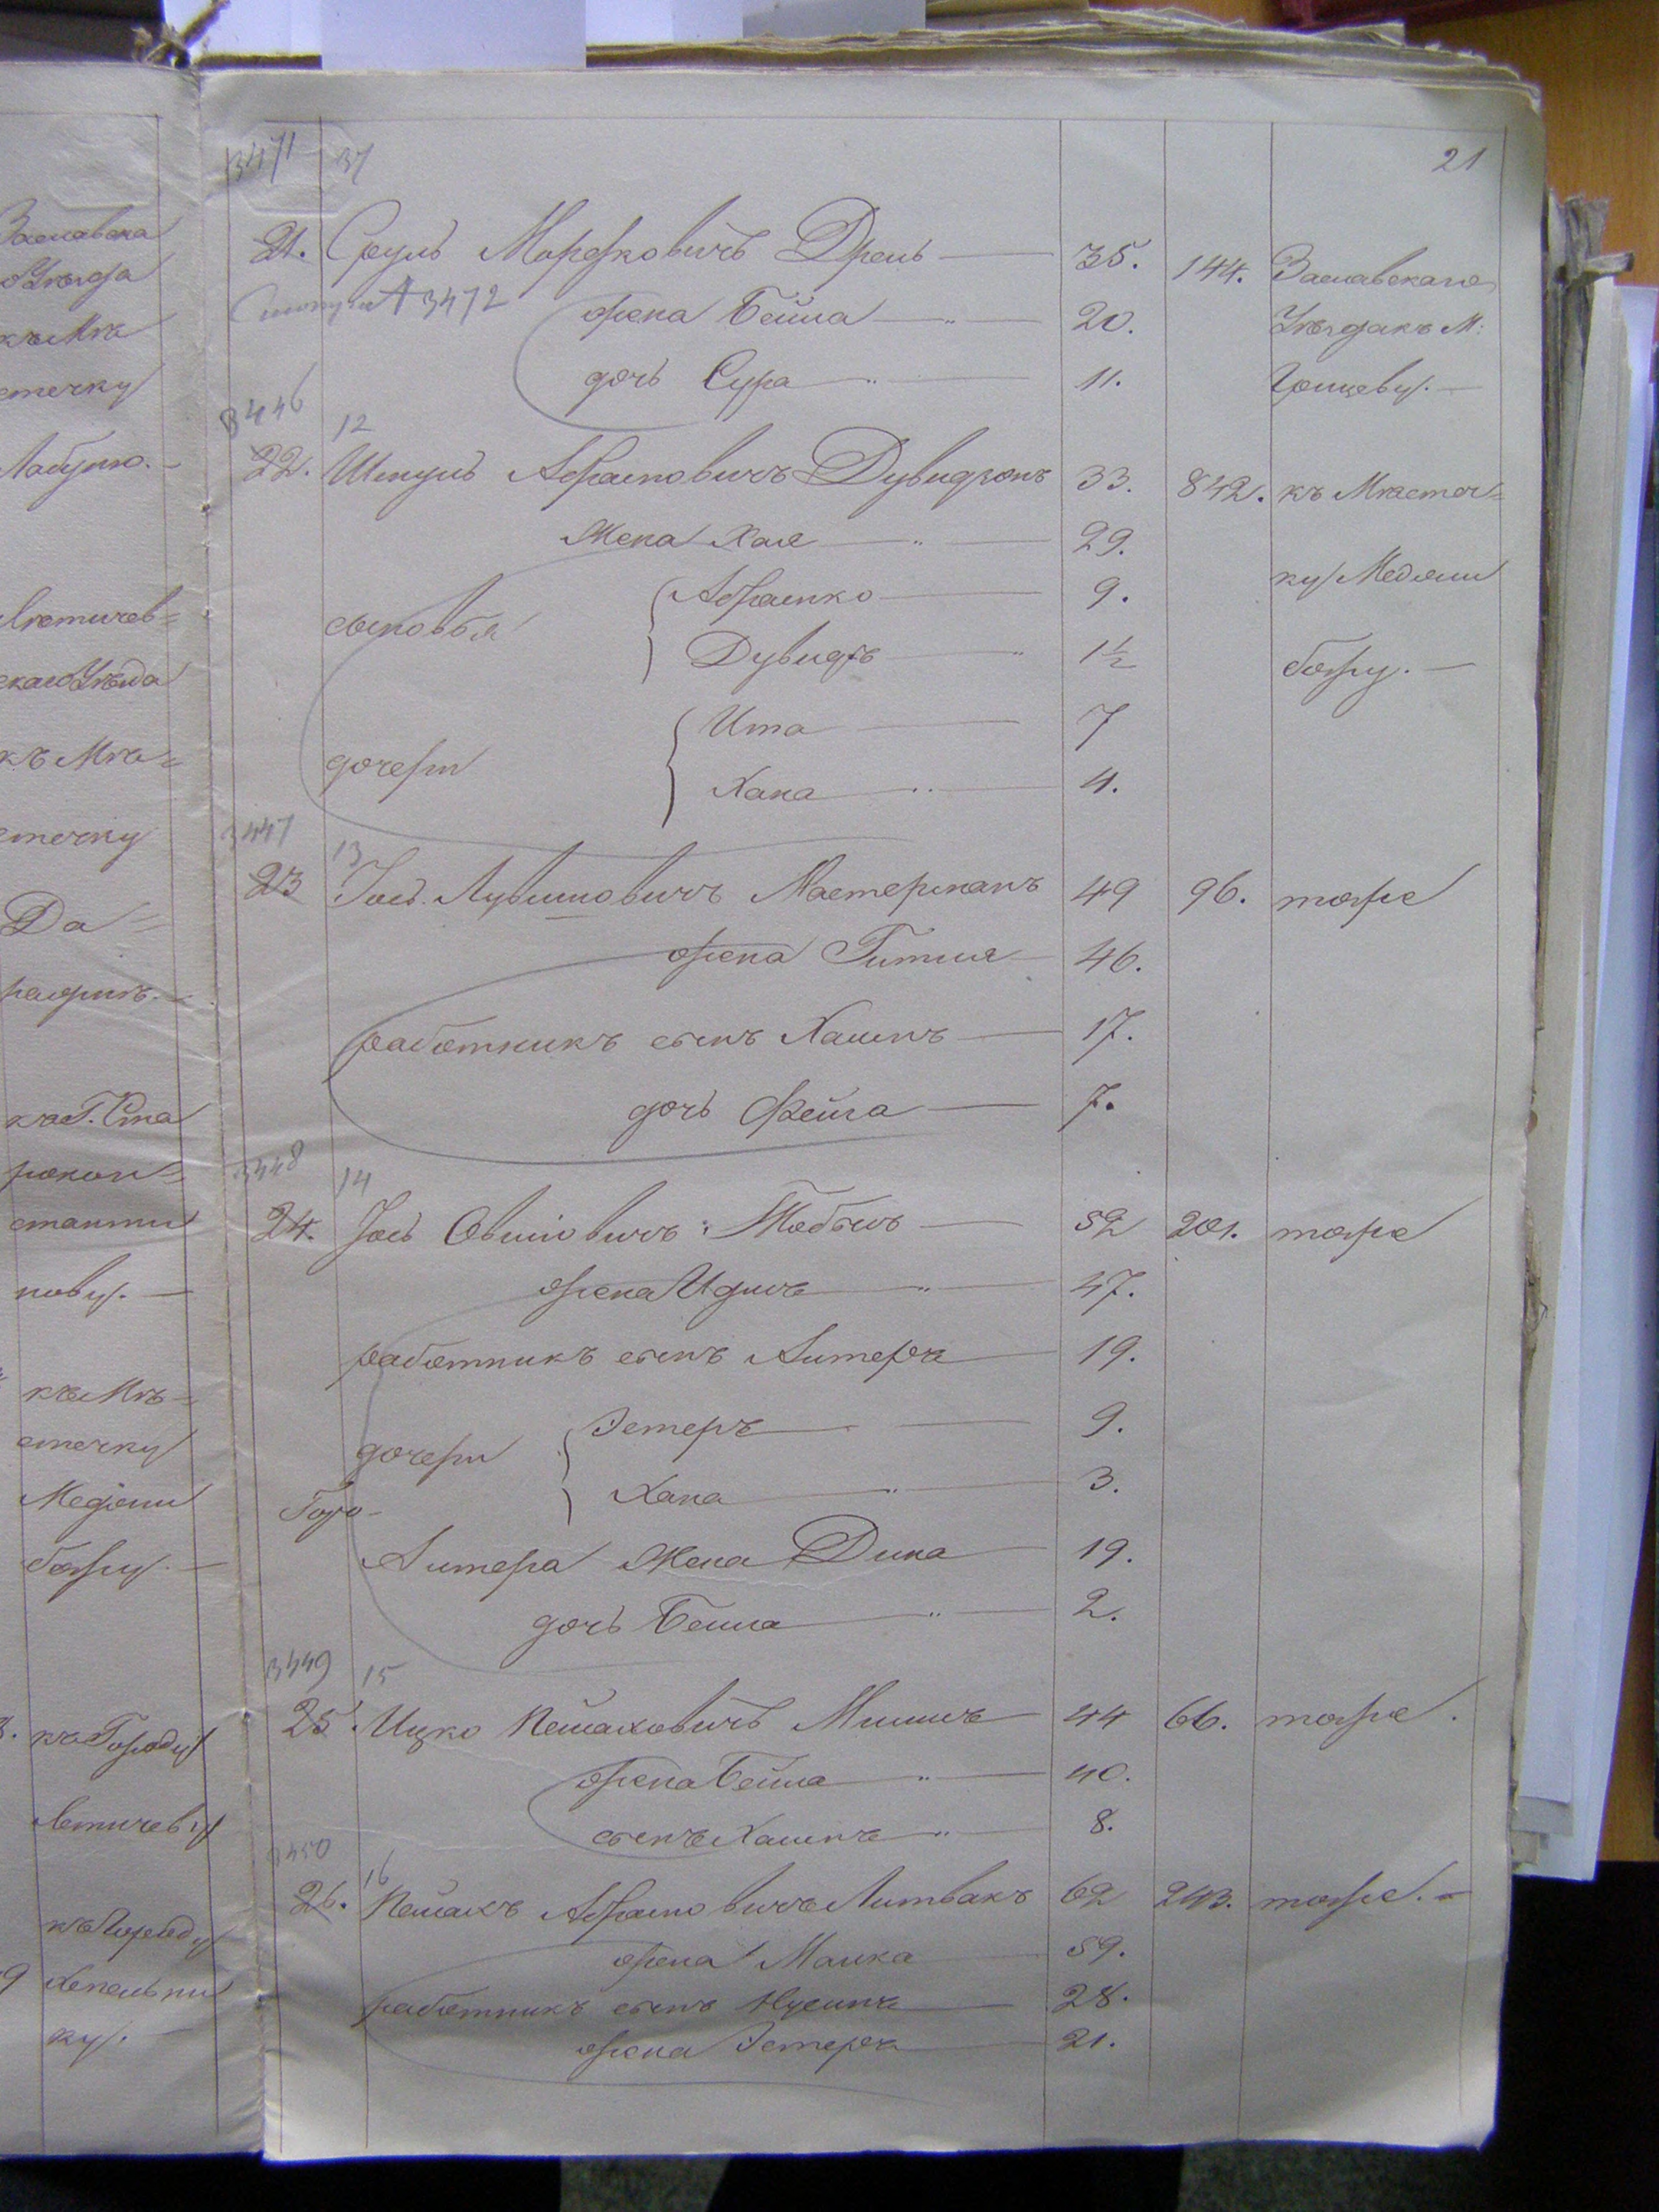 3471 37 21
21. Сруль Моршковичъ Дрель 35. 144. Заславскаго
3472 жена Бейла 20. Уѣзда къ М:
дочь Сура 11. Грицеву.
3446 12
22. Шмуль Абрамовичъ Дувидзонъ 33. 842. къ Мѣстеч=
Жена Хая 29.
ку Меджи
сыновья Абрамко 9.
Дувидъ 1½ божу.
дочери Ита 7
Хана 4.
3447 13
23 Іось Мастерманъ 49 96. тоже
жена Гитля 46.
работникъ сынъ Хаимъ 17.
дочь Фейга 7.
3448 14
24. Іось Овшіовичъ 52 201. тоже
жена Идис 47.
работникъ сынъ Литеръ 19.
дочери Эстеръ 9.
Хана 3.
Того
Литера Жена Дина 19.
дочь Бейла 2.
3449 15
25 Ицко Пейсаховичъ 44 66. тоже.
жена Бейла 40.
сынъ Хаимъ 8.
3450 16
26. Пейсахъ Абрамовичъ Литвакъ 62 243. тоже.
жена Малка 59.
работникъ сынъ Нусинъ 28.
жена Эстеръ 21.
Заславска
го Уѣзда
къ Мѣ
стечку
Лабуню.
Летичев=
скаго Уѣзда
къ Мѣ=
стечку
къ Г. Ста
рокон=
станти
нову.
къ Мѣ=
стечку
Меджи
божу.
къ Городу
Летичеву
къ Городу
Хмельни
ку.